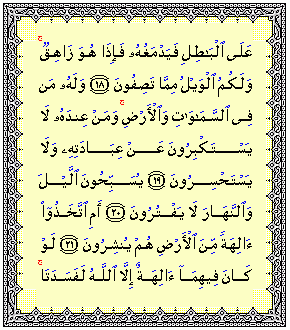 عَلَى ٱلْبَـٰطِلِ فَيَدْمَغُهُۥ فَإِذَا هُوَ زَاهِقٌ ۚ
وَلَكُمُ ٱلْوَيْلُ مِمَّا تَصِفُونَ ١٨ وَلَهُۥ مَن
فِى ٱلسَّمَـٰوَٰتِ وَٱلْأَرْضِ ۚ وَمَنْ عِندَهُۥ لَا
يَسْتَكْبِرُونَ عَنْ عِبَادَتِهِۦ وَلَا
يَسْتَحْسِرُونَ ١٩ يُسَبِّحُونَ ٱلَّيْلَ
وَٱلنَّهَارَ لَا يَفْتُرُونَ ٢٠ أَمِ ٱتَّخَذُوٓا۟
ءَالِهَةً مِّنَ ٱلْأَرْضِ هُمْ يُنشِرُونَ ٢١ لَوْ
كَانَ فِيهِمَآ ءَالِهَةٌ إِلَّا ٱللَّهُ لَفَسَدَتَا ۚ